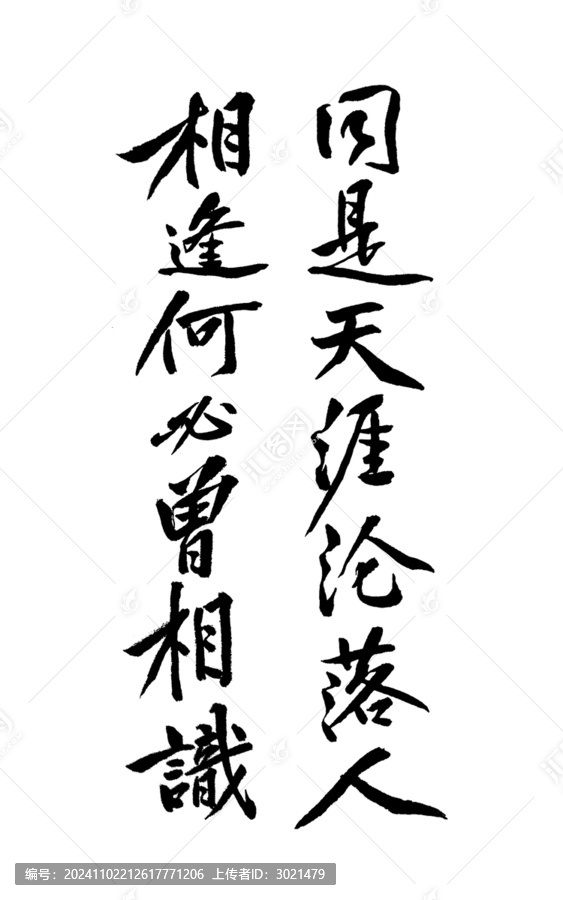 同是天涯沦落人
相逢何必曾相識
汇图网
编号：20241102212617771206 上传者ID：3021479